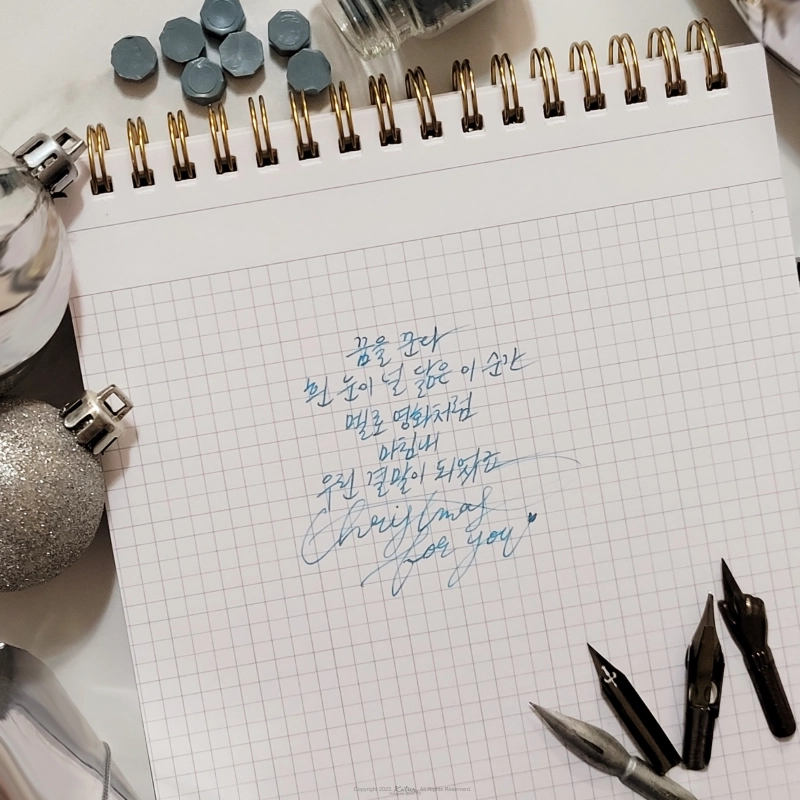 꿈을 꾼다
흰 눈이 널 닮은 이 순간
멜로 영화처럼
마침내
우린 결말이 되었고
Christmas
for you
Copyright 2023. All Rights Reserved.